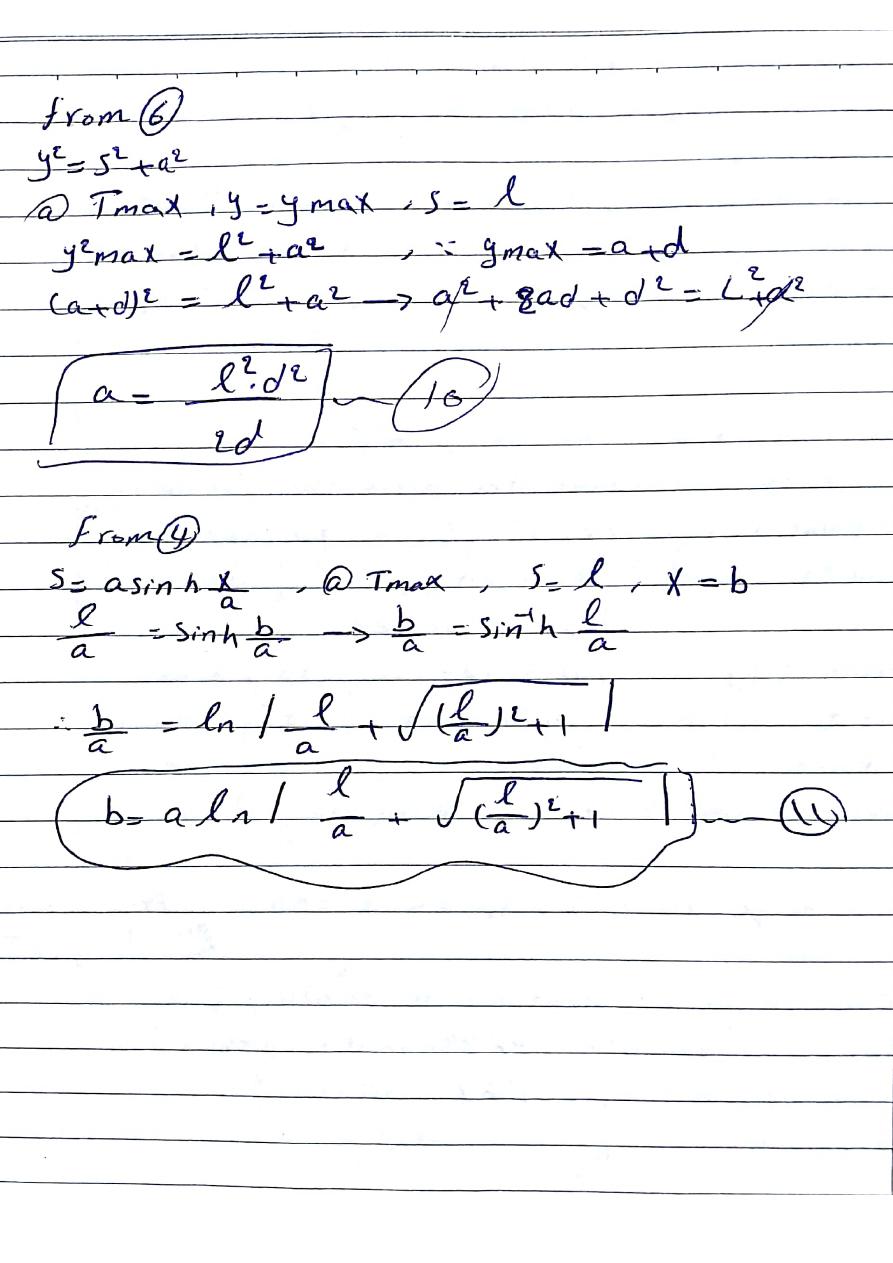 from ⑥
y² = s² + a²
@ Tmax , y = y max , s = l
y²max = l² + a² , ∵ ymax = a+d
(a+d)² = l² + a² → a² + 2ad + d² = L² + a²
a = l².d² / 2d ⑩
From ④
S = a sinh x/a , @ Tmax , S = l , x = b
l/a = Sinh b/a → b/a = Sin⁻¹h l/a
∴ b/a = ln | l/a + √((l/a)² + 1) |
b = a ln | l/a + √((l/a)² + 1) | ⑪